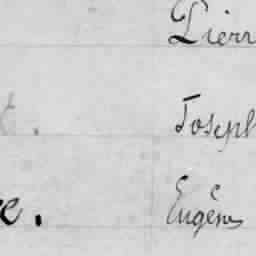 Pierr
t. Joseph
e. Eugène